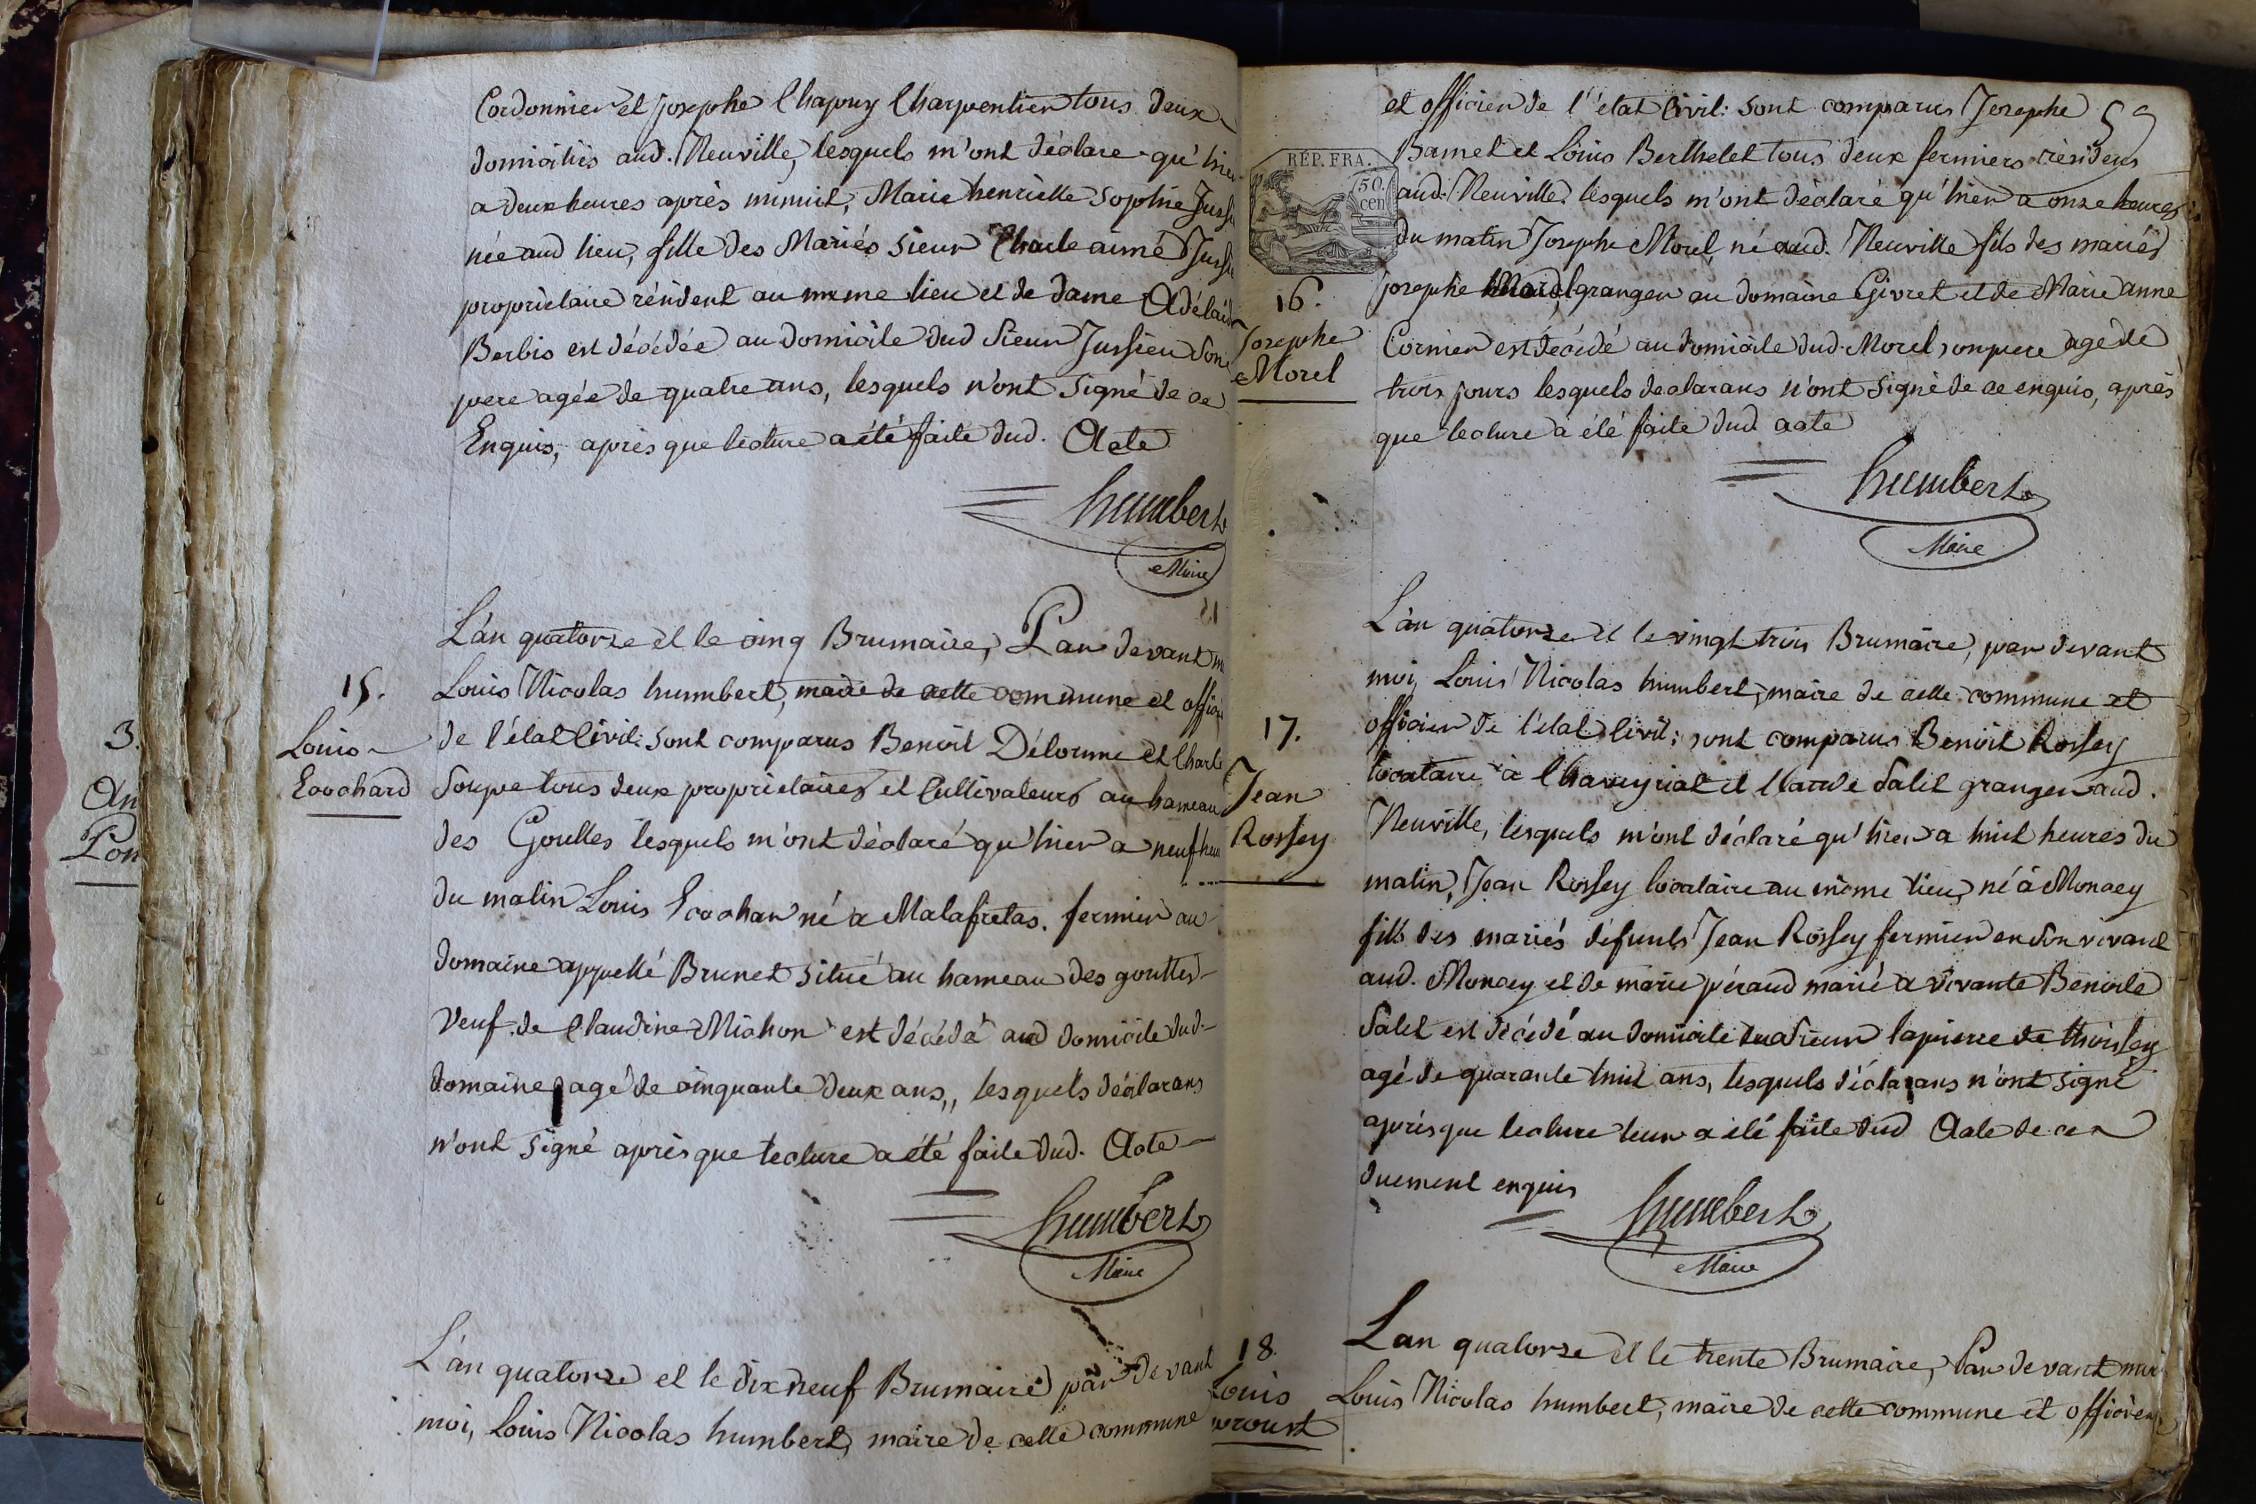 Cordonnier et josephe Chapuy Charpentier tous deux
domiciliés aud. Neuville, lesquels m'ont déclare qu'hier
a deux heures après minuit, Marie henriette Sophie
née aud lieu, fille des Mariés Sieur Charle aimé
proprietaire résident au meme lieu et de dame Adélaïde
Berbis est décédée au domicile dud Sieur Jussieu Son
pere agée de quatre ans, lesquels n'ont Signé de ce
Enquis, après que lecture a été faite dud. Acte
humbert
Maire
15.
Louis
Cochard
L'an quatorze et le cinq Brumaire, Par devant
Louis Nicolas humbert, maire de cette commune et officier
de l'état Civil: sont comparus Benoit Délorme et Charle
Soupe tous deux proprietaires et Cultivateurs au hameau
des Goultes lesquels m'ont déclaré qu'hier a neuf heu
du matin Louis Cochar né a Malafretas, fermier au
domaine appellé Brunet Situé au hameau des gouttes
Veuf de Claudine Michon est décédé aud domicile dud.
domaine agé de cinquante deux ans,, lesquels déclarans
n'ont signé après que lecture a été faite dud. Acte
humbert
Maire
L'an quatorze et le dix neuf Brumaire par devant
moi, Louis Nicolas humbert, maire de cette commune
3.
An
59
RÉP. FRA.
50.
cen
et officier de l'état Civil: sont comparus Josephe
Bamet et Louis Berthelet tous deux fermiers résidens
aud. Neuville, lesquels m'ont déclaré qu'hier a onze heures
du matin Josephe Morel, né aud. Neuville fils des mariés
josephe granger au domaine Givret et de Marie anne
Cornier est décédé au domicile dud. Morel, son pere age de
trois jours lesquels declarans n'ont Signé de ce enquis, après
que lecture a été faite dud acte
16.
Josephe
Morel
humbert
Maire
L'an quatorze et le vingt trois Brumaire, par devant
moi, Louis Nicolas humbert, maire de cette commune et
officier de l'état Civil; sont comparus Benoit Rossey
locataire à Chaveyriat et Claude Salet granger aud.
Neuville, lesquels m'ont déclaré qu'hier a huit heures du
matin, Jean Rossey locataire au même lieu, né à Moncey
fils des mariés défunts Jean Rossey fermier en Son vivant
aud. Moncey et de marie péraud marié a vivante Benoite
Salet est décédé au domicile du Sieur lapierre de thoissey
agé de quarante huit ans, lesquels déclarans n'ont signé
après que lecture leur a été faite dud Acte de ce
duement enquis
17.
Jean
Rossey
humbert
Maire
18.
Louis
L'an quatorze et le trente Brumaire, Par devant moi
Louis Nicolas humbert, maire de cette commune et officier